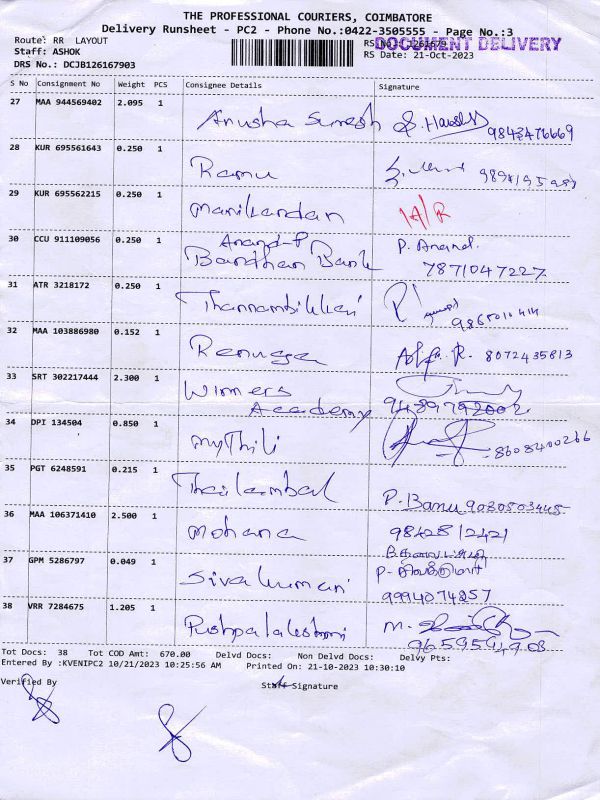 THE PROFESSIONAL COURIERS, COIMBATORE
Delivery Runsheet - PC2 - Phone No.:0422-3505555 - Page No.:3
Route: RR LAYOUT
DOCUMENT DELIVERY
Staff: ASHOK
RS Date: 21-Oct-2023
DRS No.: DCJB126167903
S No Consignment No Weight PCS Consignee Details Signature
27 MAA 944569402 2.095 1 Anusha Suresh
28 KUR 695561643 0.250 1 Ramu
29 KUR 695562215 0.250 1 Manikandan
30 CCU 911109056 0.250 1 Anand-P P. Anand.
Bandhan Bank 7871047227
31 ATR 3218172 0.250 1 Thannambikkai
32 MAA 103886980 0.152 1 Renuga 8072435813
33 SRT 302217444 2.300 1 Winners
Academy
34 DPI 134504 0.850 1 Mythili 8608400266
35 PGT 6248591 0.215 1 Thailambal P. Banu
36 MAA 106371410 2.500 1 Mohana
37 GPM 5286797 0.049 1 Sivakumari
38 VRR 7284675 1.205 1 Pushpalakshmi M.
Tot Docs: 38 Tot COD Amt: 670.00 Delvd Docs: Non Delvd Docs: Delvy Pts:
Entered By :KVENIPC2 10/21/2023 10:25:56 AM Printed On: 21-10-2023 10:30:10
Verified By Staff Signature